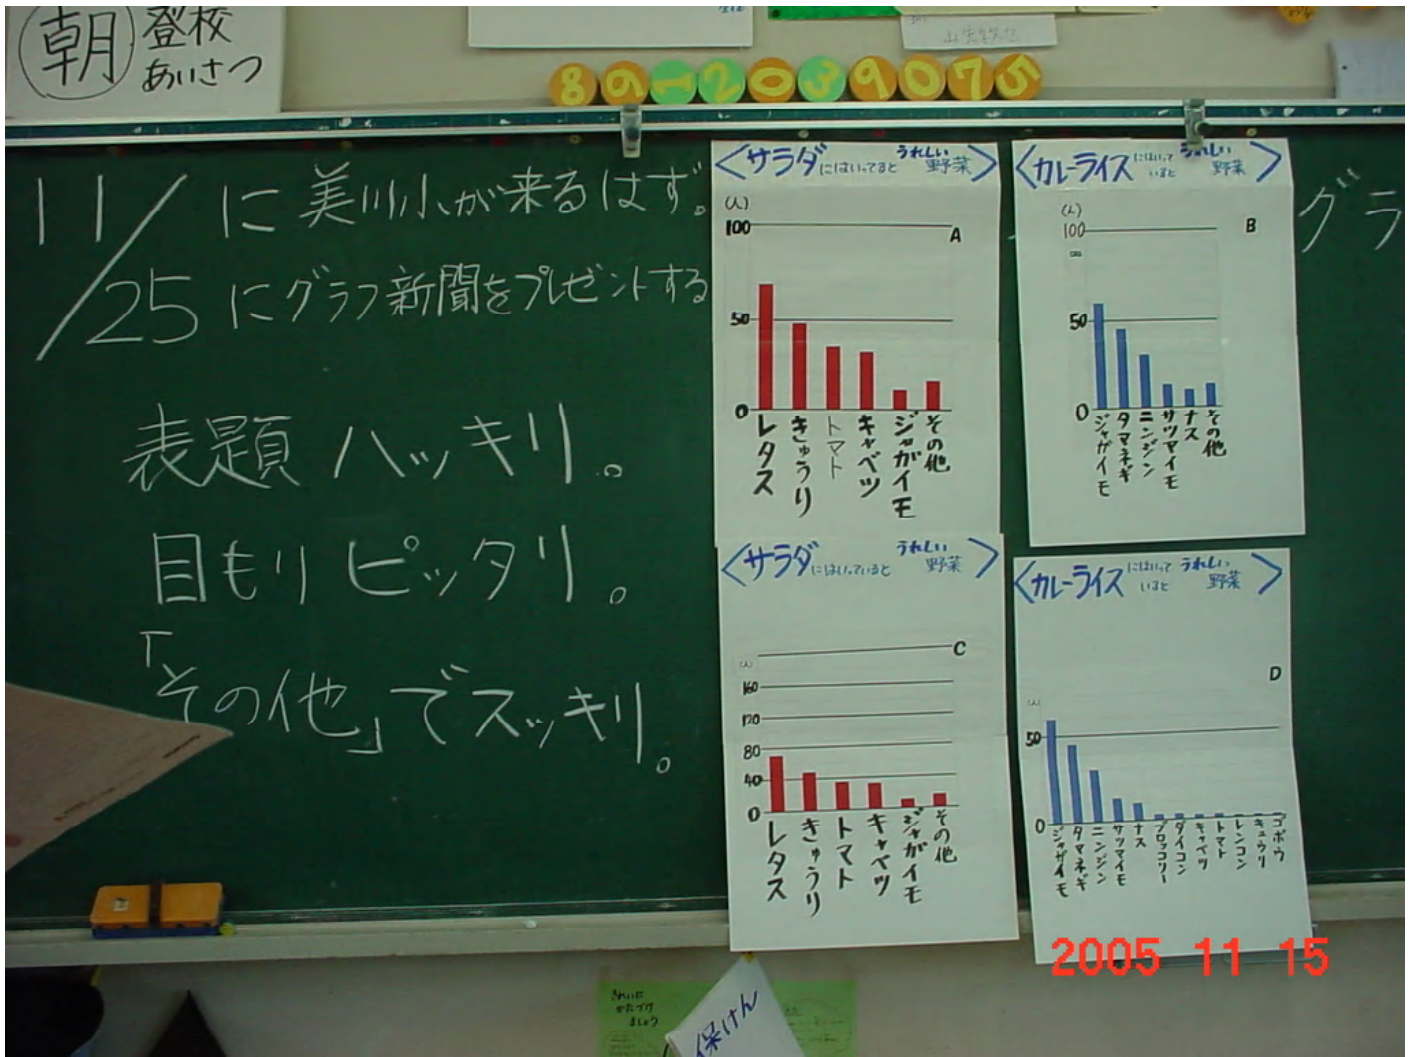 朝 登校
あいさつ
8912039075
11/25
に美川小が来るはず。
にグラフ新聞をプレゼントする
表題 ハッキリ。
目もり ピッタリ。
「その他」でスッキリ。
グラ
<サラダにはいってるとうれしい野菜>
(人)
A
100
50
0
レタス
きゅうり
トマト
キャベツ
ジャガイモ
その他
<カレーライスにはいっているとうれしい野菜>
(人)
B
100
50
0
ジャガイモ
タマネギ
ニンジン
サツマイモ
ナス
その他
<サラダにはいっているとうれしい野菜>
(人)
C
160
120
80
40
0
レタス
きゅうり
トマト
キャベツ
ジャガイモ
その他
<カレーライスにはいっているとうれしい野菜>
(人)
D
50
0
ジャガイモ
タマネギ
ニンジン
サツマイモ
ナス
ブロッコリー
ダイコン
キャベツ
トマト
レンコン
キュウリ
ゴボウ
きれいに
かたづけ
ましょう
保けん
2005 11 15